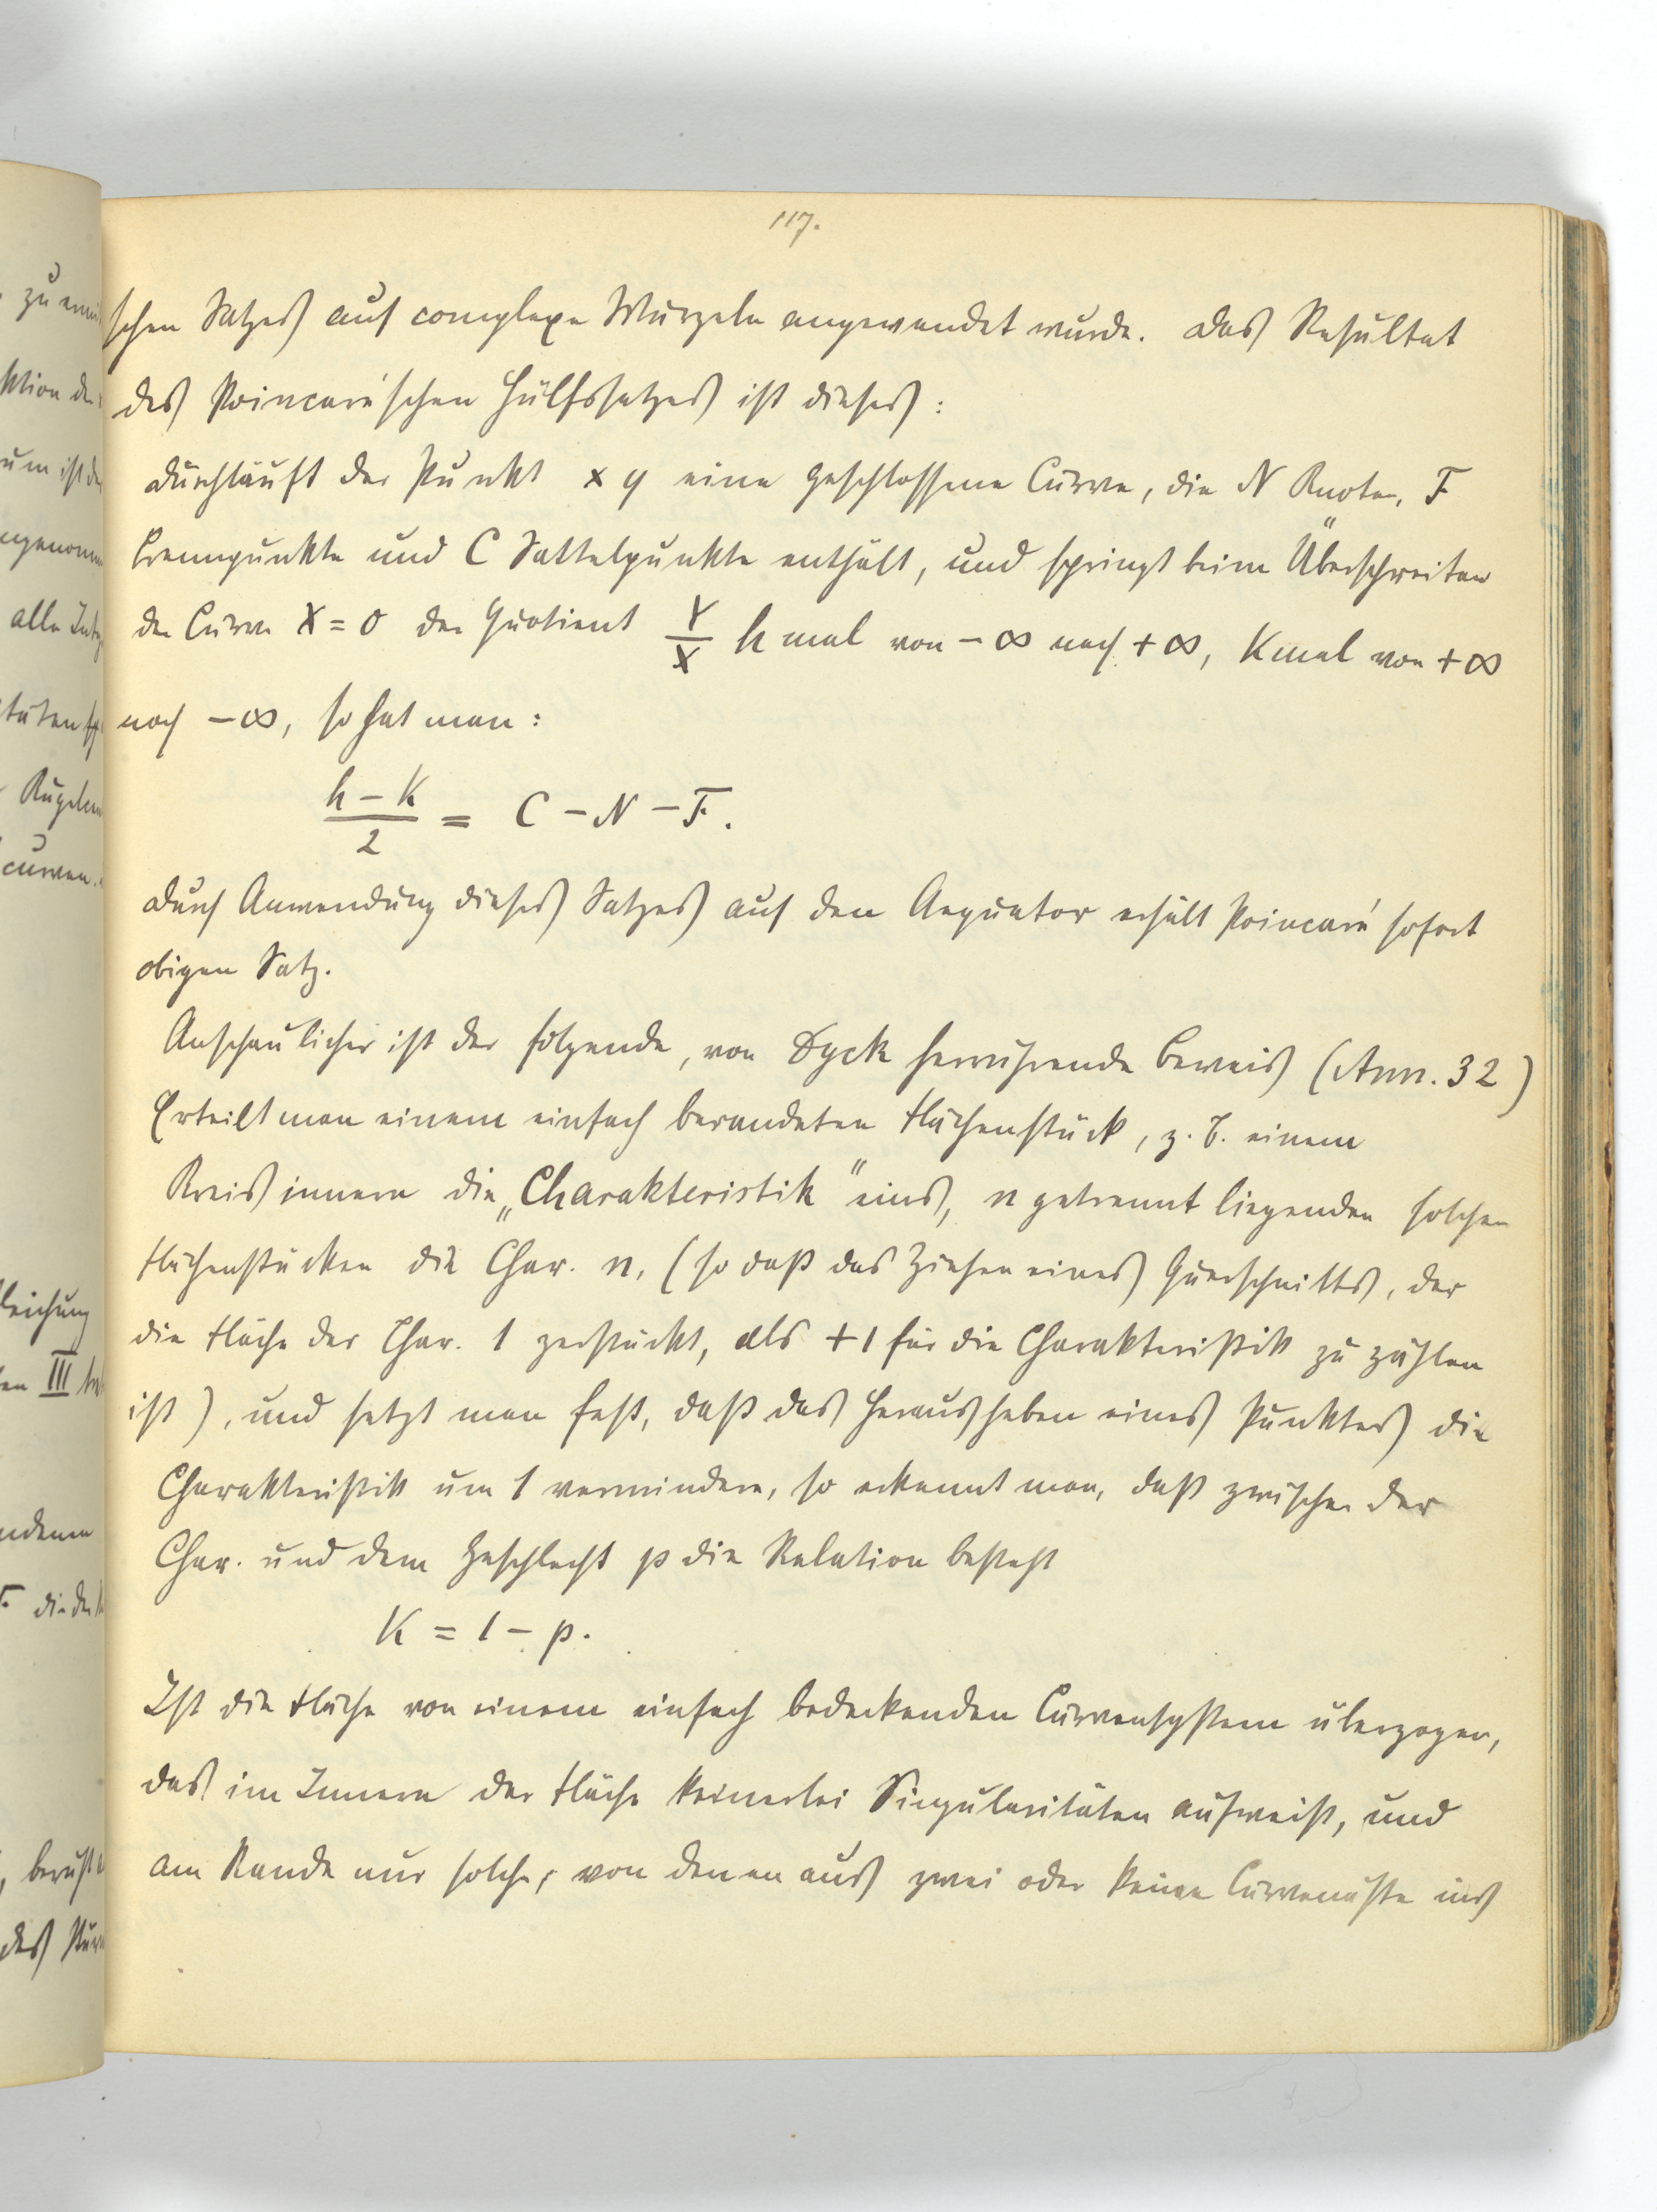 117.
schen Satzes auf complexe Wurzeln angewandt wurde. Das Resultat
des Poincaré'schen Hülfssatzes ist dieses:
Durchläuft der Punkt x y eine geschlossene Curve, die N Knoten, F
Brennpunkte und C Sattelpunkte enthält, und springt beim Überschreiten
der Curve X = 0 der Quotient Y/X h mal von − ∞ nach + ∞, K mal von + ∞
nach − ∞, so hat man:
(h − K)/2 = C − N − F.
Durch Anwendung dieses Satzes auf den Aequator erhält Poincaré sofort
obigen Satz.
Anschaulicher ist der folgende, von Dyck herrührende Beweis (Ann. 32)
Erteilt man einem einfach berandeten Flächenstück, z. B. einem
Kreisinnern die „Charakteristik" eins, n getrennt liegenden solchen
Flächenstücken die Char. n, (so daß das Ziehen eines Querschnitts, der
die Fläche der Char. 1 zerstückt, als + 1 für die Charakteristik zu zählen
ist), und setzt man fest, daß das Herausheben eines Punktes die
Charakteristik um 1 vermindere, so erkennt man, daß zwischen der
Char. und dem Geschlecht p die Relation besteht
K = 1 − p.
Ist die Fläche von einem einfach bedeckenden Curvensystem überzogen,
das im Innern der Fläche keinerlei Singularitäten aufweist, und
am Rande nur solche, von denen aus zwei oder keine Curvenäste ins